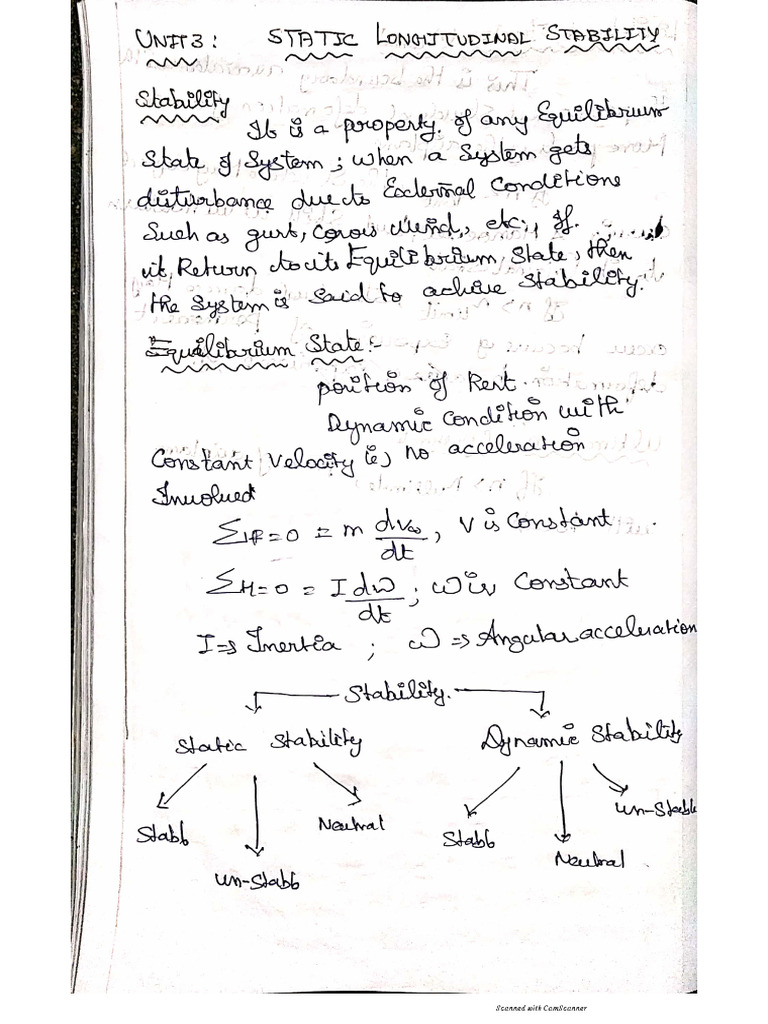 UNIT 3: STATIC LONGITUDINAL STABILITY
Stability
It is a property of any Equilibrium
State of System; when a System gets
disturbance due to External Conditions
Such as gust, Cross wind, etc., If
it, Return to its Equilibrium State, then
the System is said to achive Stability.
Equilibrium State:-
position of Rest.
Dynamic Condition with
Constant Velocity ie, no acceleration
Involved
ΣF=0 = m dv∞/dt, V is Constant.
ΣM=0 = I dω/dt; ω is Constant
I => Inertia ; ω => Angular acceleration
Stability.
Static Stability Dynamic Stability
Stable Neutral Stable un-Stable
un-Stable Neutral.
Scanned with CamScanner